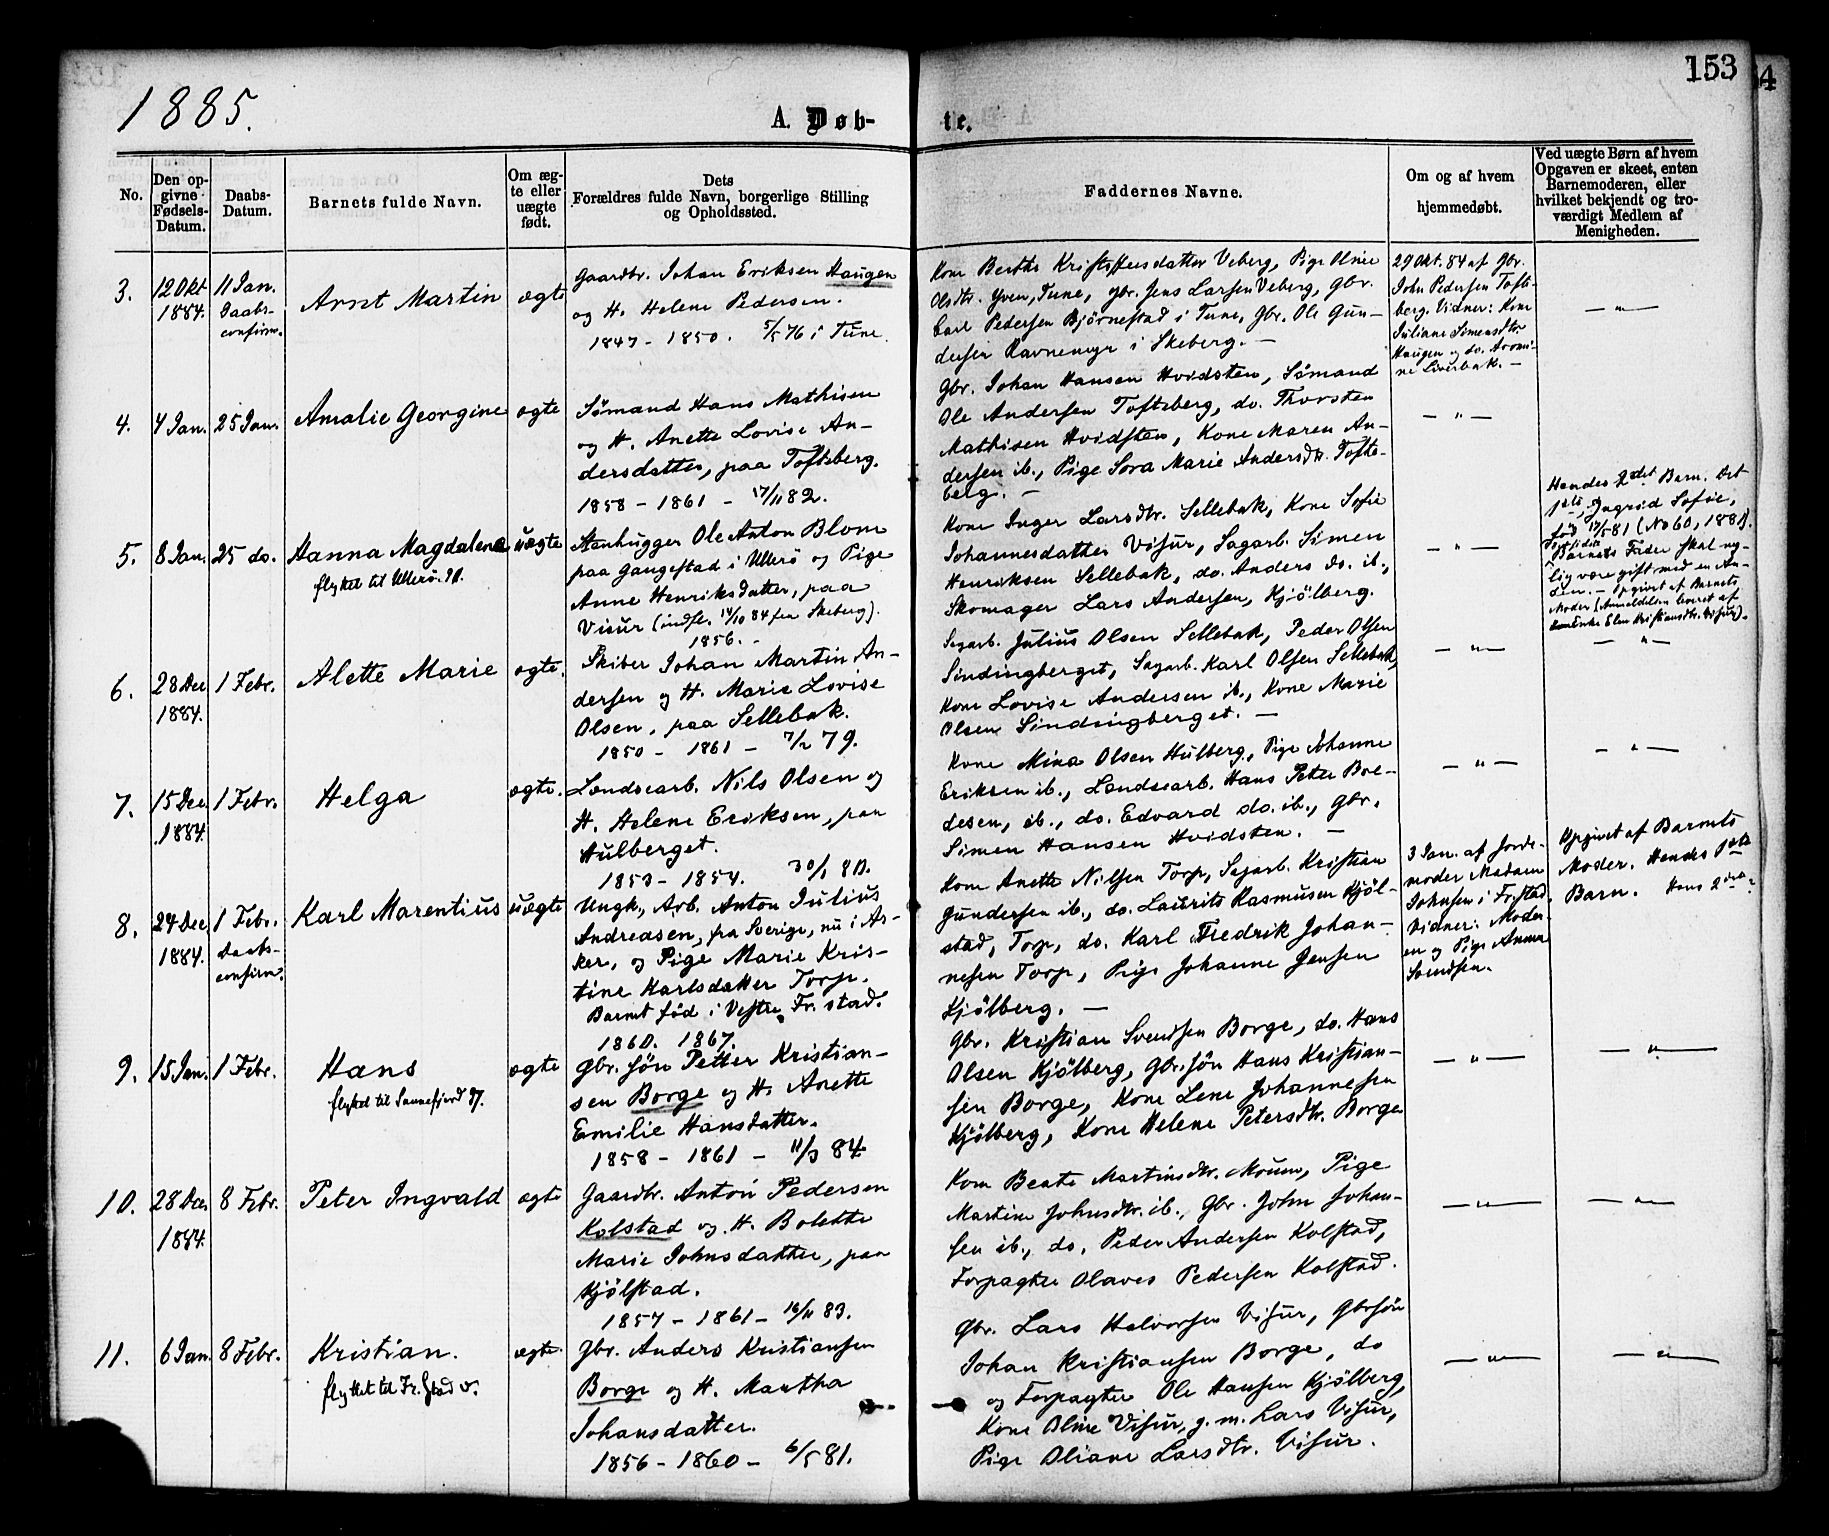 153
1885.
A. Døb-
te.
No.
Den op-
givne
Fødsels-
Datum.
Daabs-
Datum.
Barnets fulde Navn.
Om æg-
te eller
uægte
født.
Dets
Forældres fulde Navn, borgerlige Stilling
og Opholdssted.
Faddernes Navne.
Om og af hvem
hjemmedøbt.
Ved uægte Børn af hvem
Opgaven er skeet, enten
Barnemoderen, eller
hvilket bekjendt og tro-
værdigt Medlem af
Menigheden.
3.
12 Okt
1884.
11 Jan.
Daabs-
confirm.
Arnt Martin
ægte
Gaardbr. Johan Eriksen Haugen
og H. Helene Pedersen.
1847 - 1850. 5/5 76 i Tune.
Kone Berthe Kristoffersdatter Veberg, Pige Olnie
Olsdtr. Yven, Tune, Gbr. Jens Larsen Veberg, Gbr.
Carl Pedersen Bjørnestad i Tune, Gbr. Ole Gun-
dersen Ravnemyr i Skeberg. -
29 Okt. 84 af Gbr.
John Pedersen Tofte-
berg. Vidner: Kone
Juliane Simensdtr.
Haugen og do.
ne Liverbak. -
- " -
4.
4 Jan.
25 Jan.
Amalie Georgine
ægte
Sømand Hans Mathisen
og H. Anette Lovise An-
dersdatter, paa Tofteberg.
1858 - 1861 - 17/11 82.
Gbr. Johan Hansen Hvidsten, Sømand
Ole Andersen Tofteberg, do. Thorsten
Mathisen Hvidsten, Kone Maren An-
dersen ib., Pige Sova Marie Andersdtr. Tofte-
berg. -
- " -
5.
8 Jan.
25 do.
Hanna Magdalene
flyttet til Ullerö. 90.
uægte
Stenhugger Ole Anton Blom
paa Gangestad i Ullerö og Pige
Anne Henriksdatter, paa
Visur (indfl. 14/10 84 fra Skeberg).
1856. -
Kone Inger Larsdtr. Sellebak, Kone Sofie
Johannesdatter Visur, Sagarb. Simen
Henriksen Sellebak, do. Anders do. ib.,
Skomager Lars Andersen, Kjölberg.
- " -
Hendes 2det Barn. Det
1ste, Ingrid Sofie,
fød 17/5 81 (No 60, 1881).
Barnets Fader skal ny-
lig være gift med en An-
den. - Opgivet af Barnets
Moder (Anmeldelsen leveret af
Enke Elen Kristiansdtr. Visur).
6.
28 Dec
1884.
1 Febr.
Alette Marie
ægte.
Skiber Johan Martin An-
dersen og H. Marie Lovise
Olsen, paa Sellebak.
1850 - 1861 - 7/2 79.
Sagarb. Julius Olsen Sellebak, Peder Olsen
Sindingberget, Sagarb. Karl Olsen Sellebak,
Kone Lovise Andersen ib., Kone Marie
Olsen Sindingberget. -
- " -
- " -
7.
15 Dec
1884.
1 Febr.
Helga
ægte.
Londsearb. Nils Olsen og
H. Helene Eriksen, paa
Hulberget.
1853 - 1854. 30/1 80.
Kone Mina Olsen Hulberg, Pige Johanne
Eriksen ib., Londsearb. Hans Peter Boe-
desen, ib., do. Edvard do. ib., Gbr.
Simen Hansen Hvidsten. -
- " -
- " -
8.
24 Dec
1884.
1 Febr.
Daabs-
confirm.
Karl Marentius
uægte
Ungk., Arb. Anton Julius
Andreasen, fra Sverige, nu i As-
ker, og Pige Marie Kris-
tine Karlsdatter Torp.
Barnet fød i Vestre Fr. stad.
1860. 1867.
Kone Anette Nilsen Torp, Sagarb. Kristian
Gundersen ib., do. Laurits Rasmusen Kjöl-
stad, Torp, do. Karl Fredrik Johan-
nesen Torp, Pige Johanne Jensen
Kjölberg. -
3 Jan. af Jorde-
moder Madam
Johnsen i Fr.stad,
Vidner: Moder-
en og Pige Anna
Svendsen.
Opgivet af Barnets
Moder. Hendes 1ste
Barn. Hans 2det?
9.
15 Jan.
1 Febr.
Hans
flyttet til Sannefjord 87.
ægte
Gbr. sön Petter Kristian-
sen Borge og H. Anette
Emilie Hansdatter.
1858 - 1861 - 11/3 84
Gbr. Kristian Svendsen Borge, do. Hans
Olsen Kjölberg, Gbr.sön Hans Kristian-
sen Borge, Kone Lene Johannesen
Kjölberg, Kone Helene Petersdtr. Borge
- " -
- " -
10.
28 Dec.
1884.
8 Febr.
Peter Ingvald
ægte
Gaardbr. Anton Pedersen
Kolstad og H. Bolette
Marie Johnsdatter, paa
Kjölstad.
1857 - 1861 - 16/11 83.
Kone Beate Martinsdtr. Moum, Pige
Martine Johnsdtr. ib., Gbr. John Johan-
sen ib., do. Peder Andersen Kolstad,
Forpagter Olaves Pedersen Kolstad.
- " -
- " -
11.
6 Jan.
8 Febr.
Kristian.
flyttet til Fr. Stad v.
ægte.
Gbr. Anders Kristiansen
Borge og H. Martha
Johansdatter.
1856 - 1860 - 6/5 81.
Gbr. Lars Halvorsen Visur, Gbrsön
Johan Kristiansen Borge, do
og Forpagter Ole Hansen Kjölberg,
Kone Oline Visur, g. m. Lars Visur,
Pige Oliane Larsdtr. Visur.
- " -
- " -